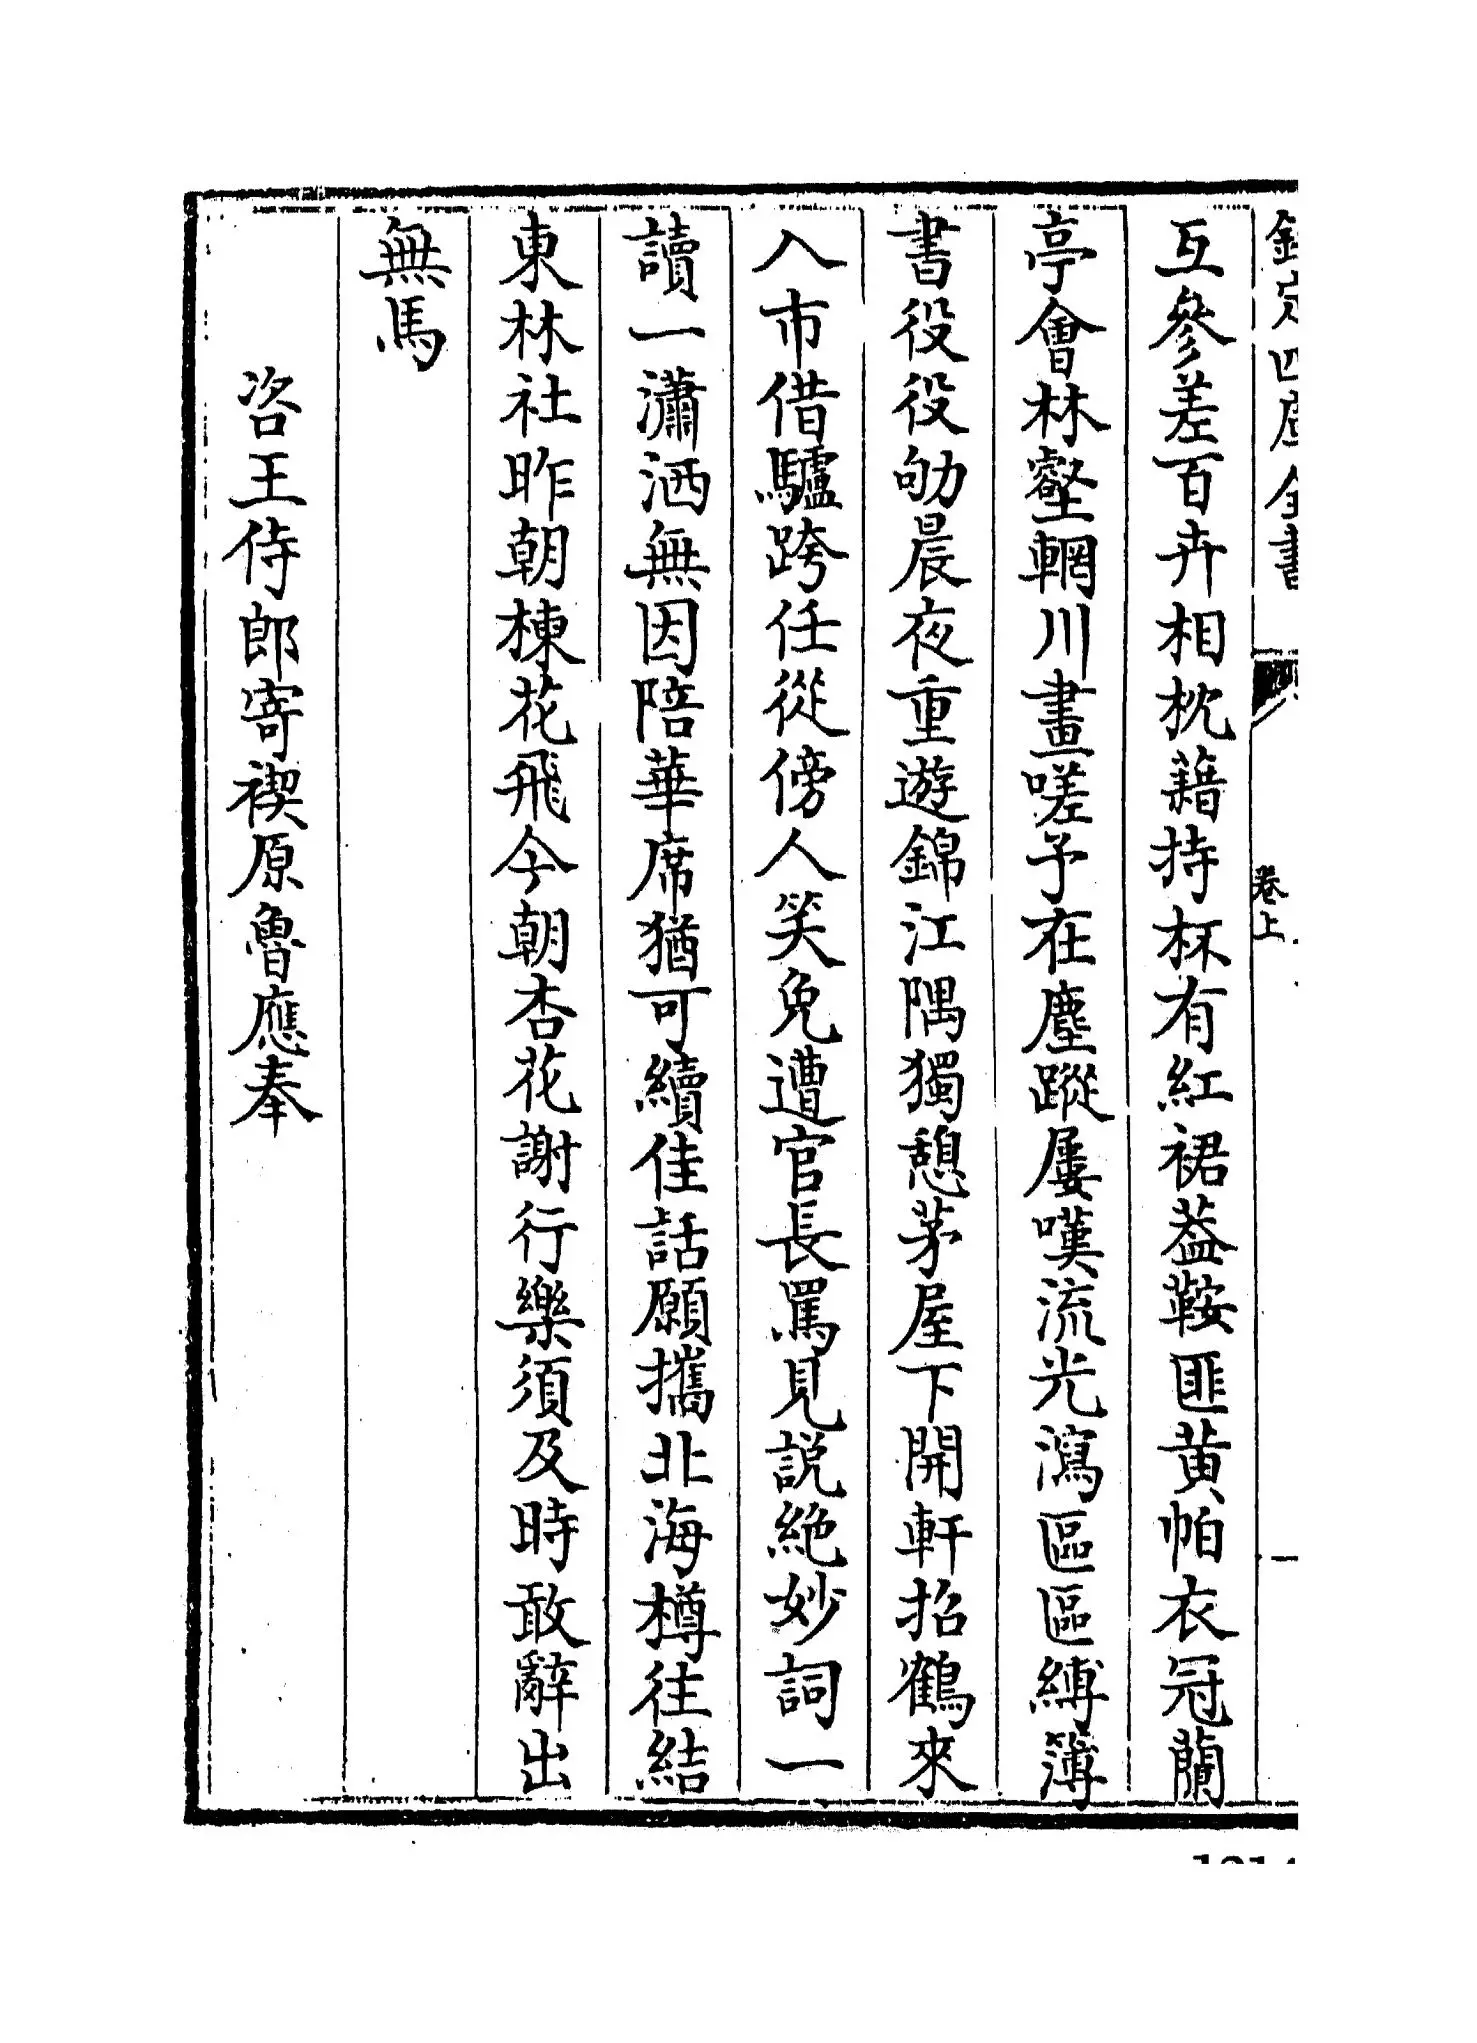 欽定四庫全書
卷上
一
互參差百卉相枕藉持杯有紅裙葢鞍匪黄帕衣冠蘭
亭會林壑輞川畫嗟予在塵蹤屢嘆流光瀉區區縛簿
書役役劬晨夜重遊錦江隅獨憩茅屋下開軒招鶴來
入市借驢跨任從傍人笑免遭官長罵見説絶妙詞一
讀一瀟洒無因陪華席猶可續佳話願攜北海樽往結
東林社昨朝棟花飛今朝杏花謝行樂須及時敢辭出
無馬
咨王侍郎寄禊原魯應奉